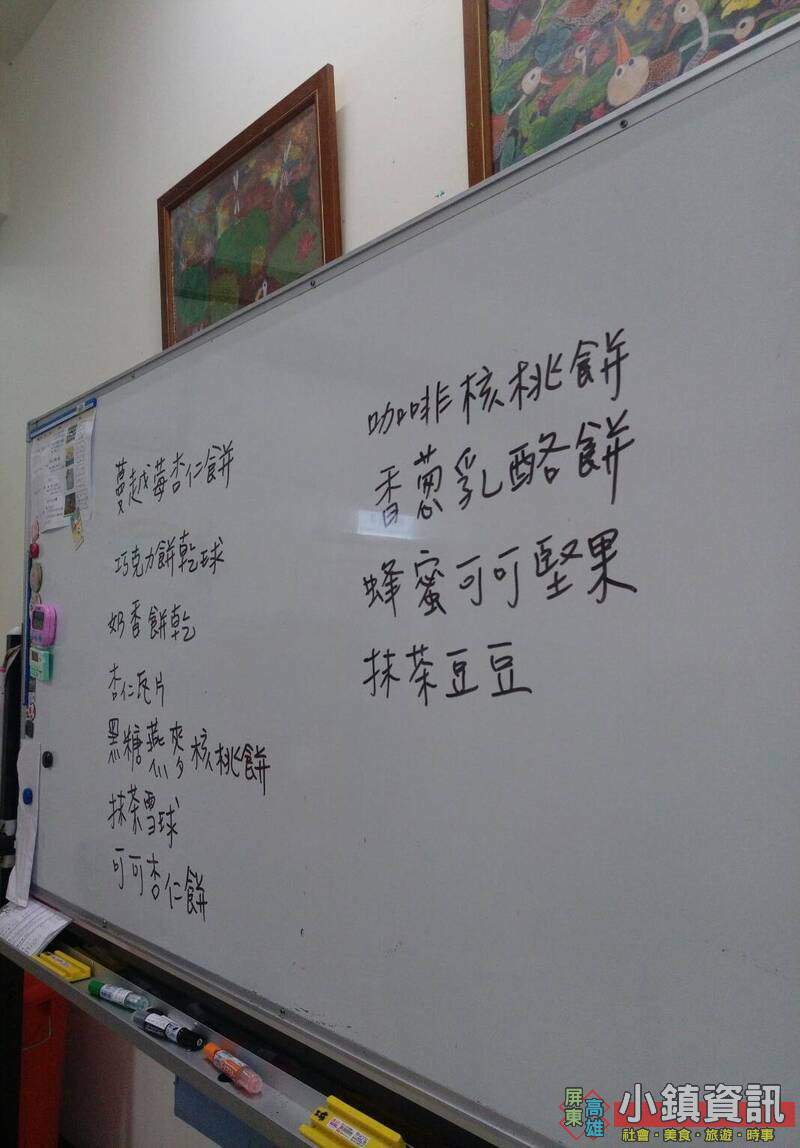 蔓越莓杏仁餅
巧克力餅乾球
奶香餅乾
杏仁瓦片
黑糖燕麥核桃餅
抹茶雪球
可可杏仁餅
咖啡核桃餅
香蔥乳酪餅
蜂蜜可可堅果
抹茶豆豆
屏東高雄
小鎮資訊
社會・美食・旅遊・時事